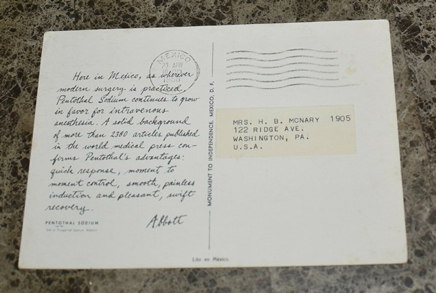 MEXICO
Here in Mexico, as wherever
modern surgery is practiced
Pentothal Sodium continues to grow
in favor for intravenous
anesthesia. A solid background
of more than 2380 articles published
in the world medical press con-
firms Pentothal's advantages:
quick response, moment to
moment control, smooth, painless
induction and pleasant, swift
recovery.
Abbott
PENTOTHAL SODIUM
MONUMENT TO INDEPENDENCE, MEXICO, D. F.
MRS. H. B. MCNARY 1905
122 RIDGE AVE.
WASHINGTON, PA.
U.S.A.
Lito en México